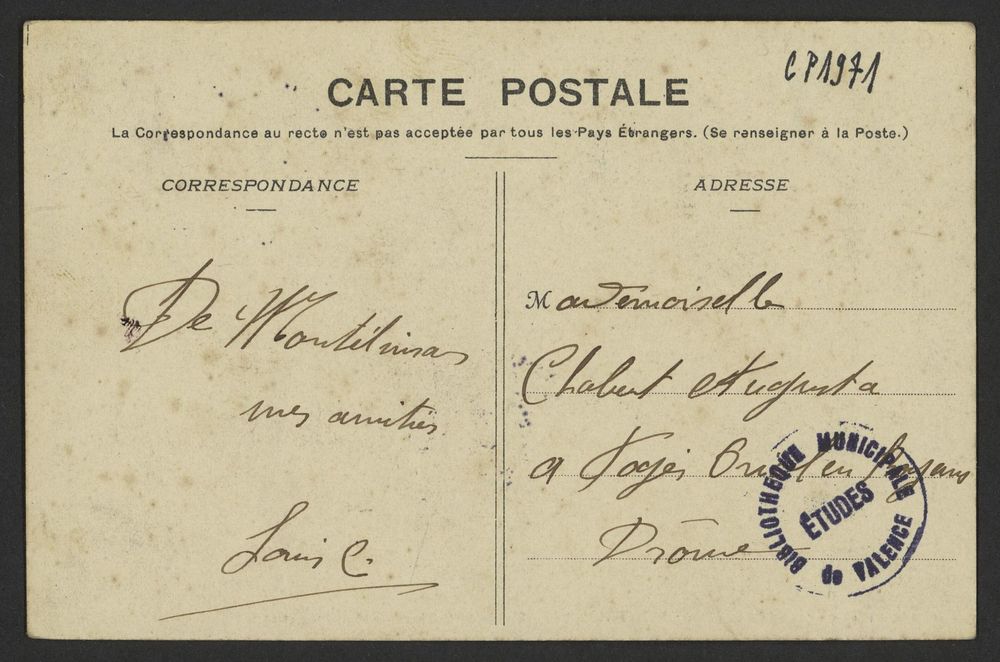 CP1971
CARTE POSTALE
La Correspondance au recto n'est pas acceptée par tous les Pays Étrangers. (Se renseigner à la Poste.)
CORRESPONDANCE
De Montélimar
mes amitiés
Louis C.
ADRESSE
Mademoiselle
Chabert Augusta
a en
Drôme
BIBLIOTHEQUE MUNICIPALE
ÉTUDES
de VALENCE